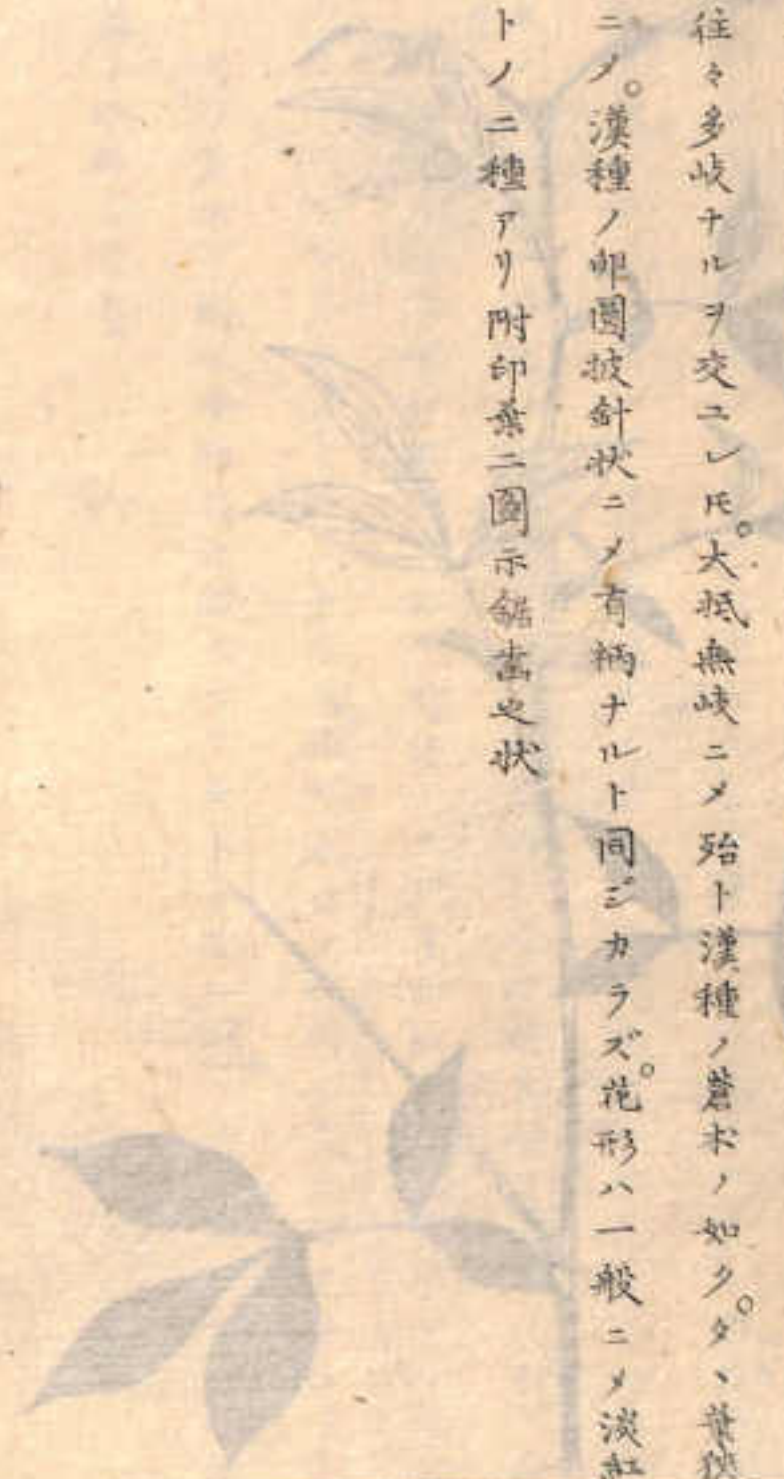 往々多岐ナルヲ交ユレㇳモ。大抵無岐ニメ殆ト漢種ノ蒼朮ノ如ク。タヽ葉狹
ニメ。漢種ノ卵圓披針状ニメ有柄ナルト同ジカラズ。花形ハ一般ニメ淡紅
トノ二種アリ附印葉二圖示鋸齒之状